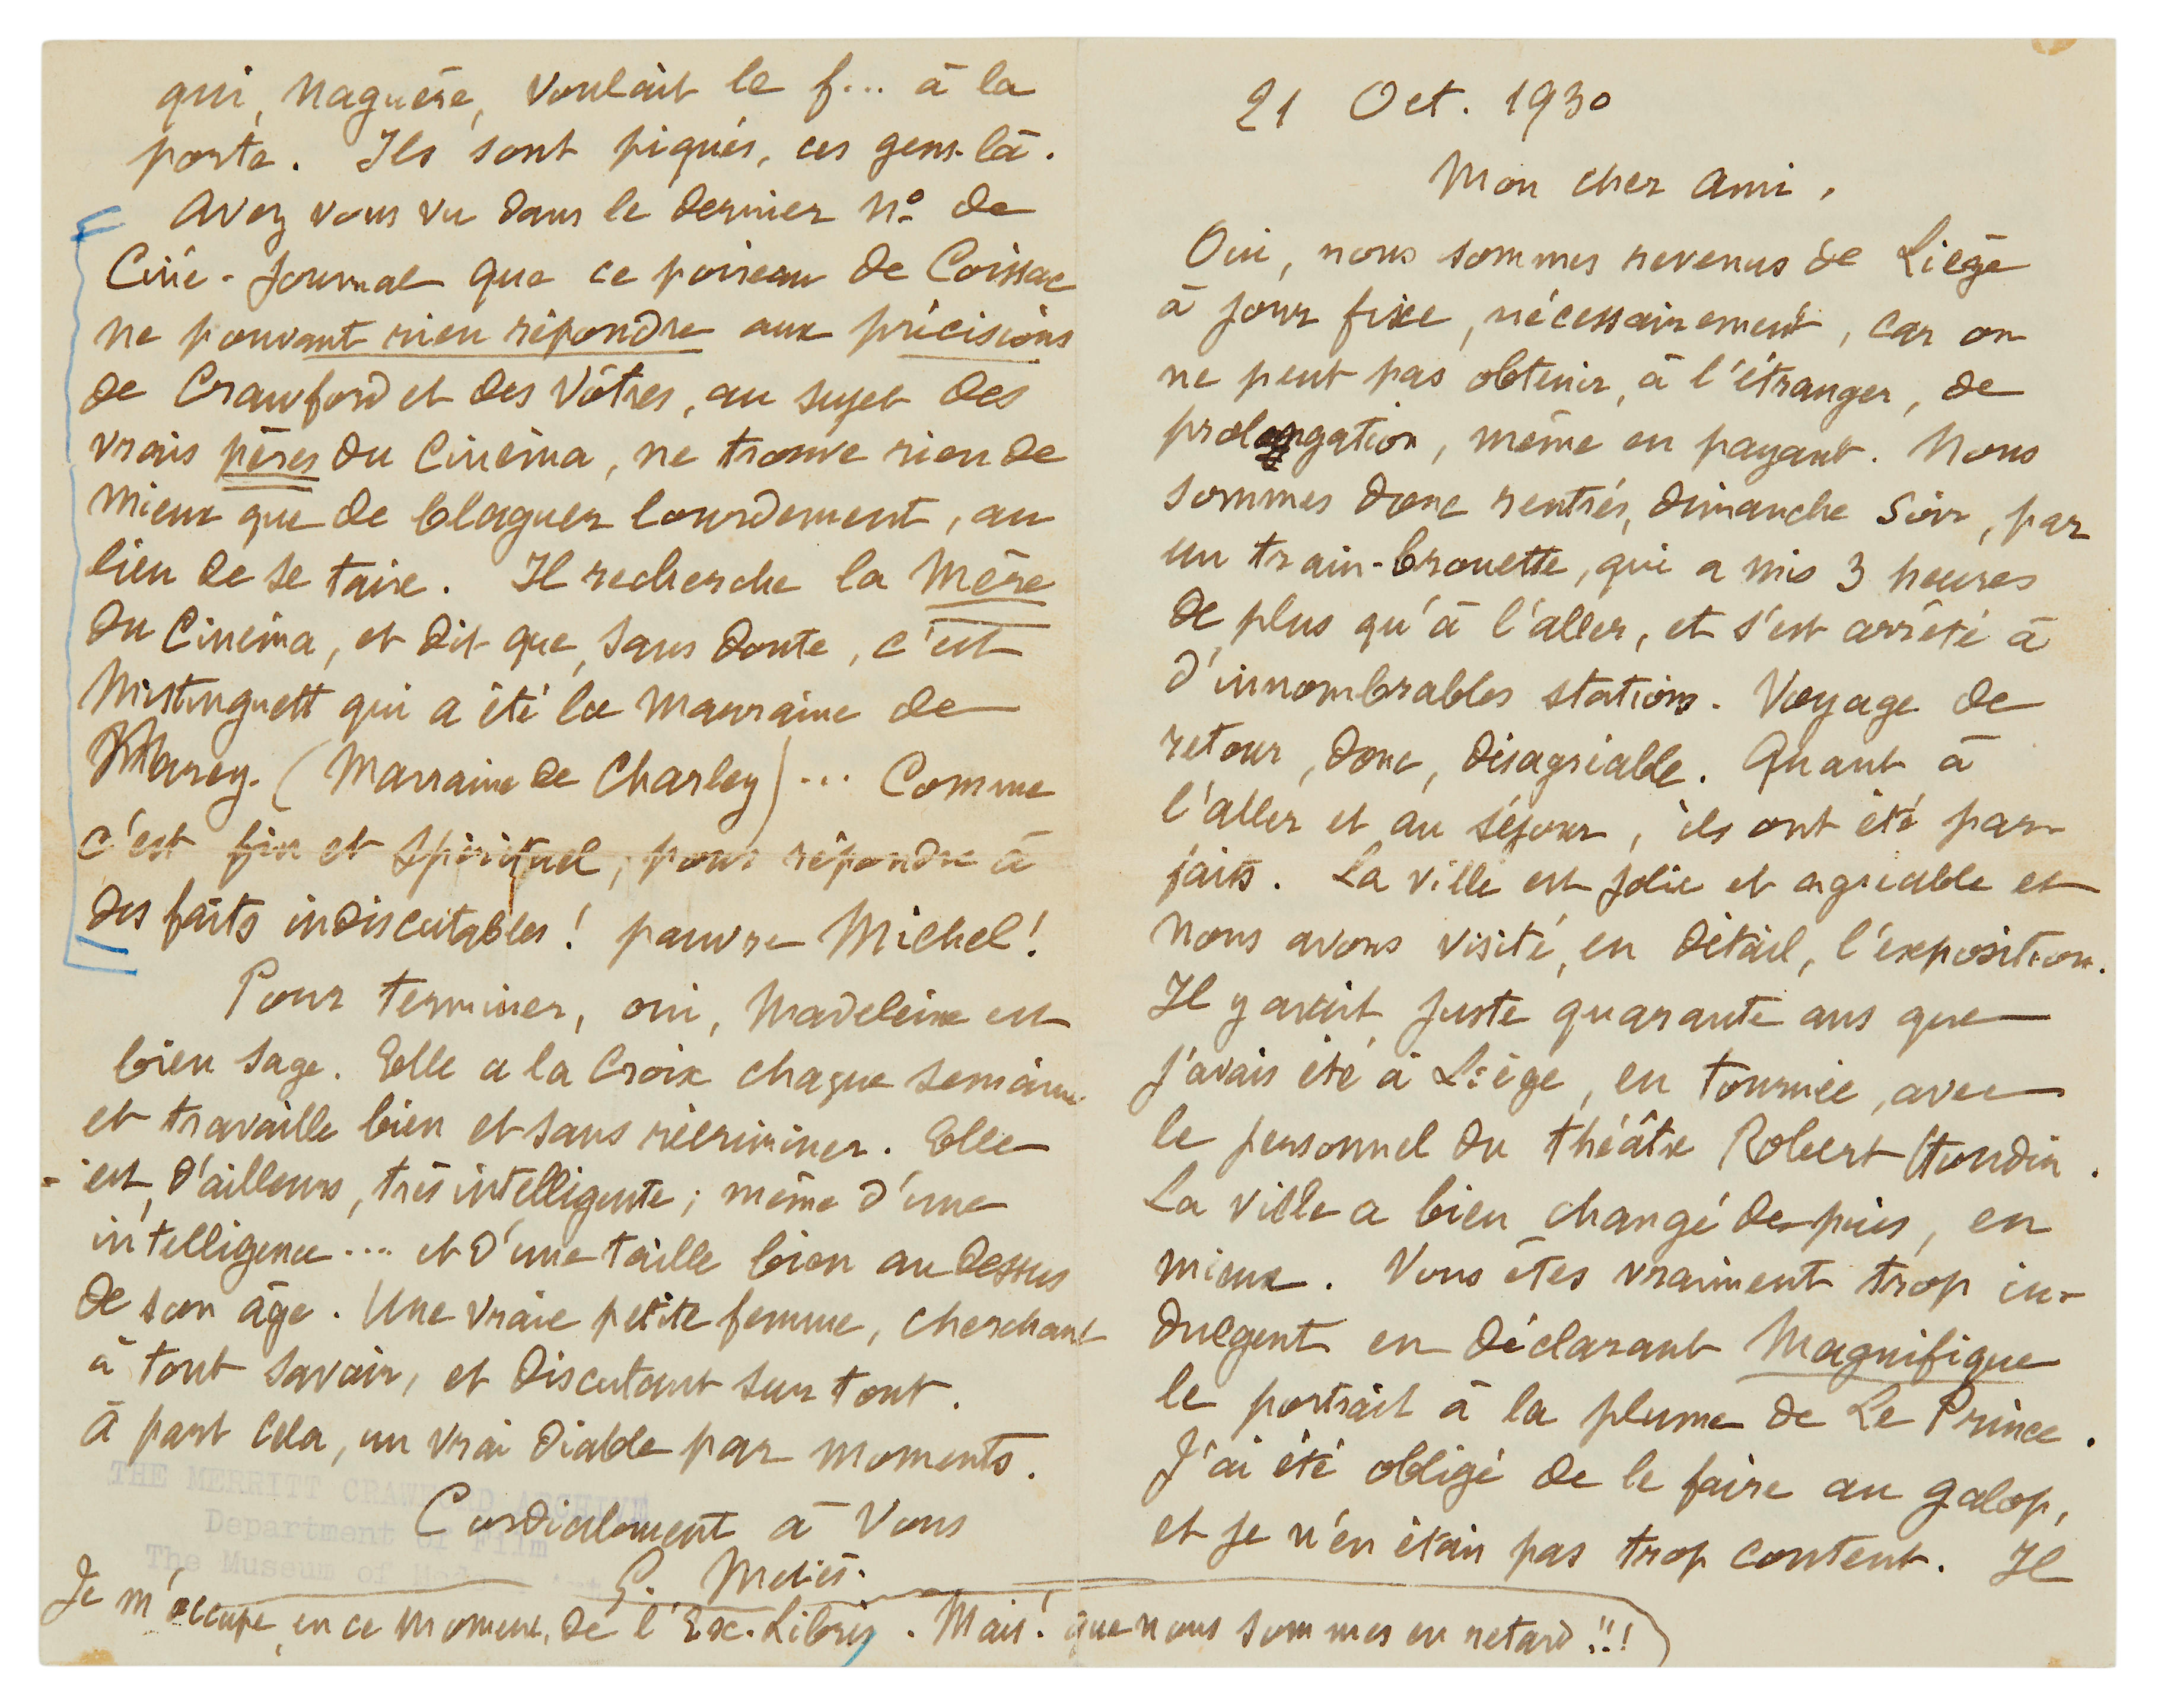 21 Oct. 1930
Mon cher ami,
Oui, nous sommes revenus de Liège
à jour fixe, nécessairement, car on
ne peut pas obtenir, à l'étranger, de
prolongation, même en payant. Nous
sommes donc rentrés, dimanche soir, par
un train-brouette, qui a mis 3 heures
de plus qu'à l'aller, et s'est arrêté à
d'innombrables stations. Voyage de
retour, donc, désagréable. Quant à
l'aller et au séjour, ils ont été par-
faits. La ville est jolie et agréable et
nous avons visité, en détail, l'exposition.
Il y avait juste quarante ans que
j'avais été à Liège, en tournée, avec
le personnel du théâtre Robert Houdin.
La ville a bien changé depuis, en
mieux. Vous êtes vraiment trop in-
dulgent en déclarant Magnifique
le portrait à la plume de Le Prince.
J'ai été obligé de le faire au galop,
et je n'en étais pas trop content. Il
qui, naguère, voulait le f... à la
porte. Ils sont piqués, ces gens-là.
Avez vous vu dans le dernier No. de
Ciné-Journal que ce poireau de Coissac
ne pouvant rien répondre aux précisions
de Crawford et des vôtres, au sujet des
vrais pères du Cinéma, ne trouve rien de
mieux que de blaguer lourdement, au
lieu de se taire. Il recherche la Mère
du Cinéma, et dit que, sans doute, c'est
Mistinguett qui a été la marraine de
Marey. (Marraine de Charley)... Comme
c'est fin et spirituel, pour répondre à
des faits indiscutables! pauvre Michel!
Pour terminer, oui, Madeleine est
bien sage. Elle a la Croix chaque semaine
et travaille bien et sans récriminer. Elle
est, d'ailleurs, très intelligente; même d'une
intelligence... et d'une taille bien au dessus
de son âge. Une vraie petite femme, cherchant
à tout savoir, et discutant sur tout.
à part cela, un vrai diable par moments.
THE MERRITT CRAWFORD ARCHIVE
Department of Film
The Museum of Modern Art
Cordialement à vous
G. Méliès.
Je m'occupe, en ce moment, de l'Ex-Libris. Mais! que nous sommes en retard!!!